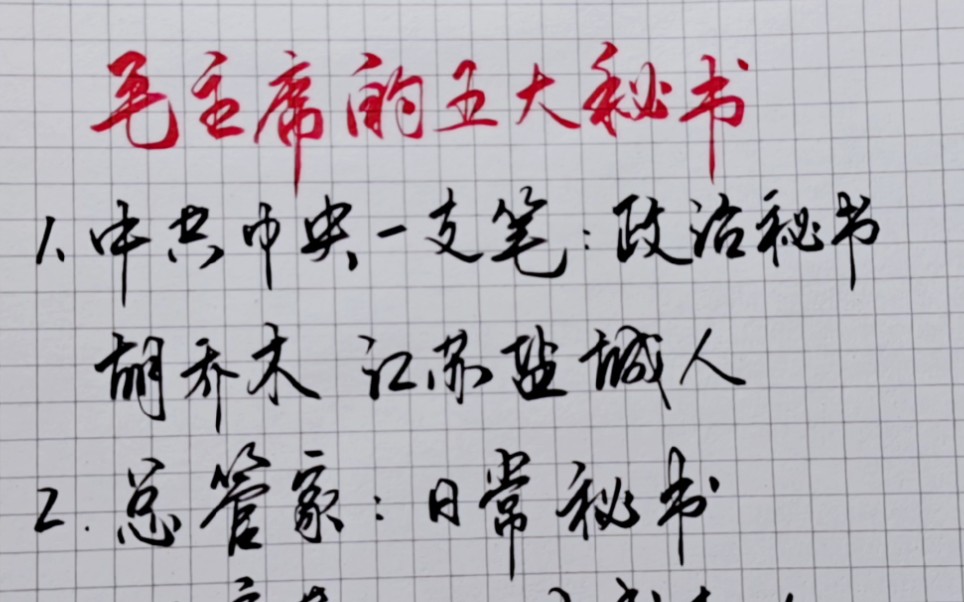 毛主席的五大秘书
1.中共中央一支笔:政治秘书
胡乔木 江苏盐城人
2.总管家:日常秘书